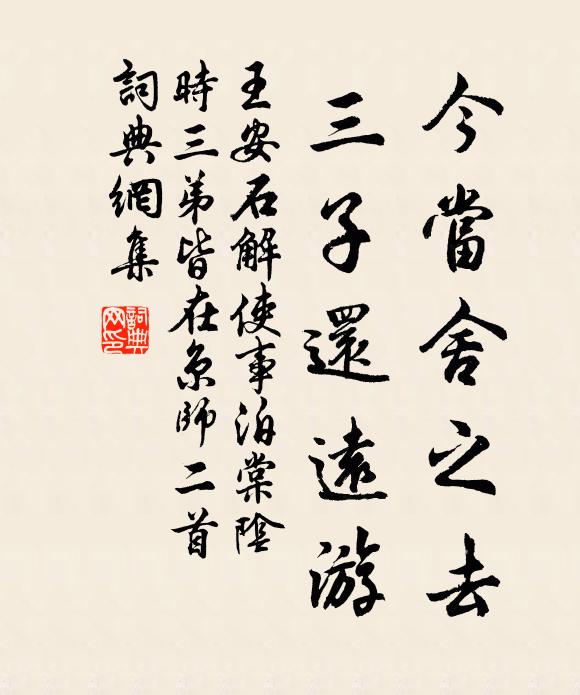 今當舍之去
三子還遠游
王安石解使事泊棠陰
時三弟皆在京師二首
詞典網集
詞典
网印